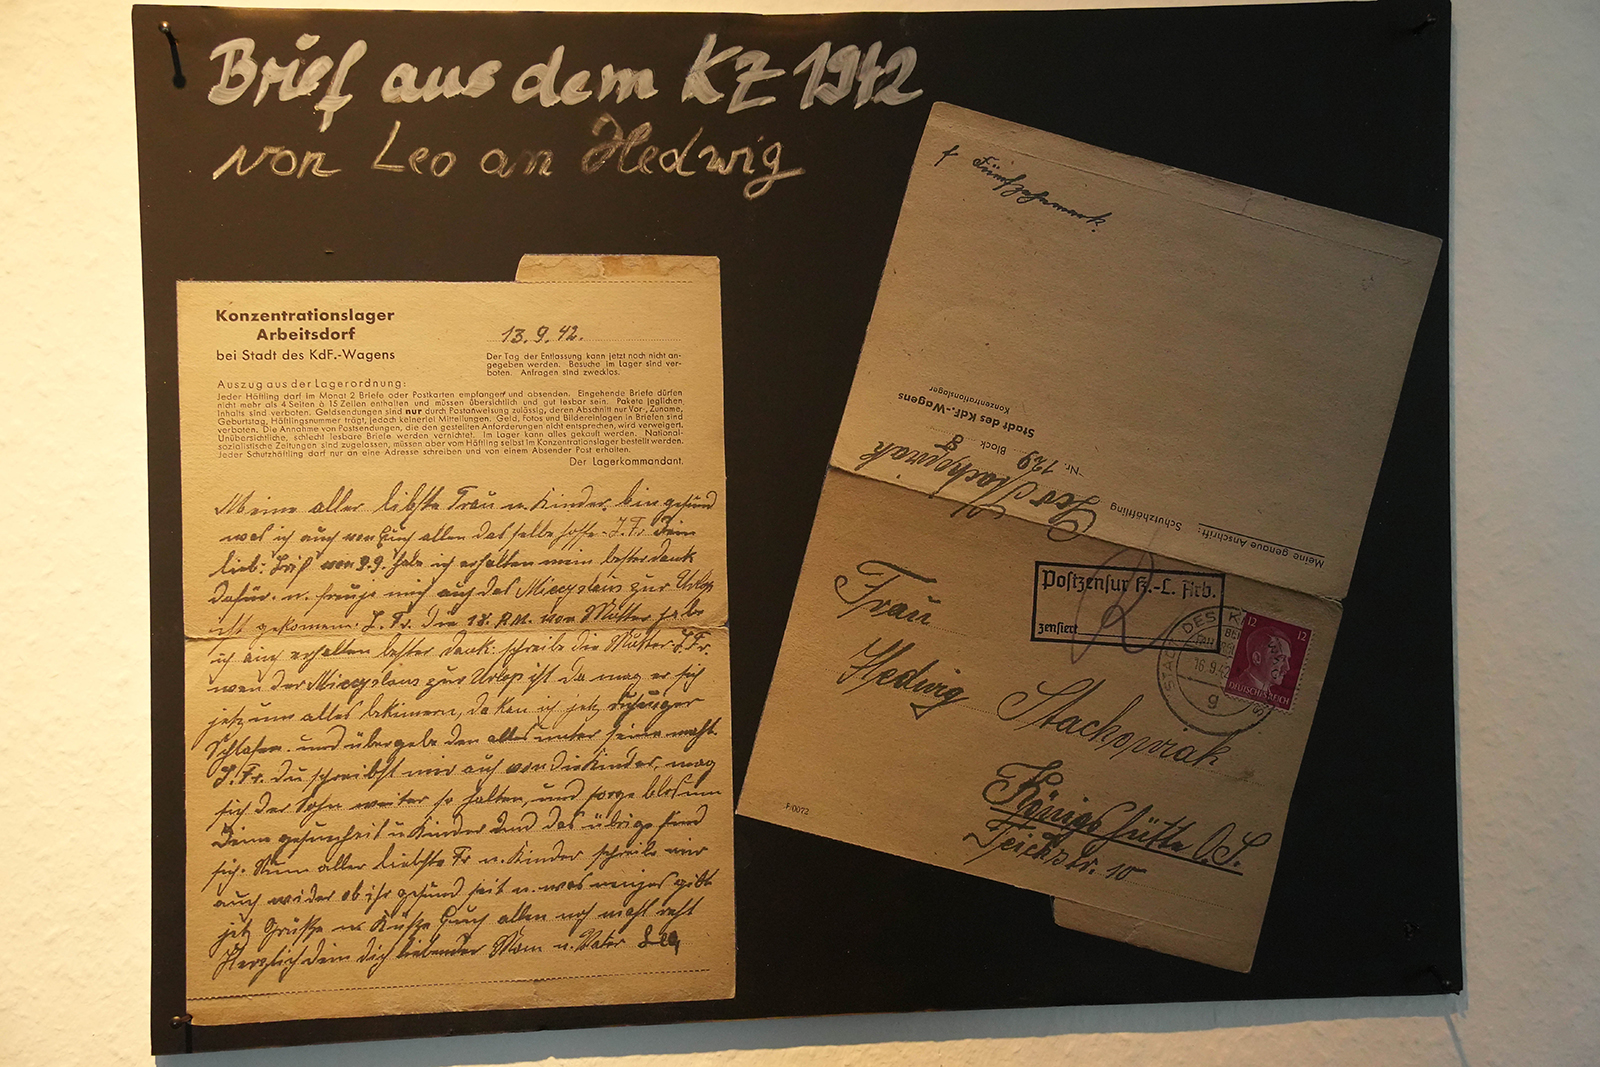 Brief aus dem KZ 1942
von Leo an Hedwig
Konzentrationslager
Arbeitsdorf
bei Stadt des KdF.-Wagens
13.9.42.
Der Tag der Entlassung kann jetzt noch nicht an-
gegeben werden. Besuche im Lager sind ver-
boten. Anfragen sind zwecklos.
Auszug aus der Lagerordnung:
Jeder Häftling darf im Monat 2 Briefe oder Postkarten empfangen und absenden. Eingehende Briefe dürfen
nicht mehr als 4 Seiten à 15 Zeilen enthalten und müssen übersichtlich und gut lesbar sein. Pakete jeglichen
Inhalts sind verboten. Geldsendungen sind nur durch Postanweisung zulässig, deren Abschnitt nur Vor-, Zuname,
Geburtstag, Häftlingsnummer trägt, jedoch keinerlei Mitteilungen. Geld, Fotos und Bildereinlagen in Briefen sind
verboten. Die Annahme von Postsendungen, die den gestellten Anforderungen nicht entsprechen, wird verweigert.
Unübersichtliche, schlecht lesbare Briefe werden vernichtet. Im Lager kann alles gekauft werden. National-
sozialistische Zeitungen sind zugelassen, müssen aber vom Häftling selbst im Konzentrationslager bestellt werden.
Jeder Schutzhäftling darf nur an eine Adresse schreiben und von einem Absender Post erhalten.
Der Lagerkommandant.
Meine aller liebste Frau u. Kinder, bin gesund
was ich auch von Euch allen dasselbe hoffe. L. Fr. Dein
lieb. Brif von 9.9. habe ich erhalten mein bester dank
dafür. u. freuje mich auf das Mieczyslaus zur Urlop
ist gekomen. L. Fr. Die 18. R.M. von Mutter habe
ich auch erhalten bester dank. schreibe die Mutter L. Fr.
wen der Mieczyslaus zur Urlop ist Da mag er sich
jetz um alles bekimern, da kan ich jetz
Schlafen. und übergebe den alles unter seine macht.
L. Fr. Du schreibst mir auch von die Kinder, mag
sich der Sohn weiter so halten, und sorge blos um
Deine gesundheit u. Kinder und das übrige find
sich. Nun aller liebste Fr u. Kinder schreib mir
auch wider ob ihr gesund seit u. was neujes gibt
jetz Grüsse u. Küsse Euch allen noch mahl recht
Herzlich dein dich liebender Mann u. Vater Leo,
Fünfzehnmark.
Meine genaue Anschrift:
Schutzhäftling
Leo Stachowiak
Nr. 129 Block 8
Konzentrationslager
Stadt des KdF.-Wagens
Postzensur K.-L. Arb.
zensiert
STADT DES K
16.9.42
g
12 12
DEUTSCHES REICH
Frau
Hedwig Stachowiak
Königshütte O.S.
Teichstr. 10
F/0072